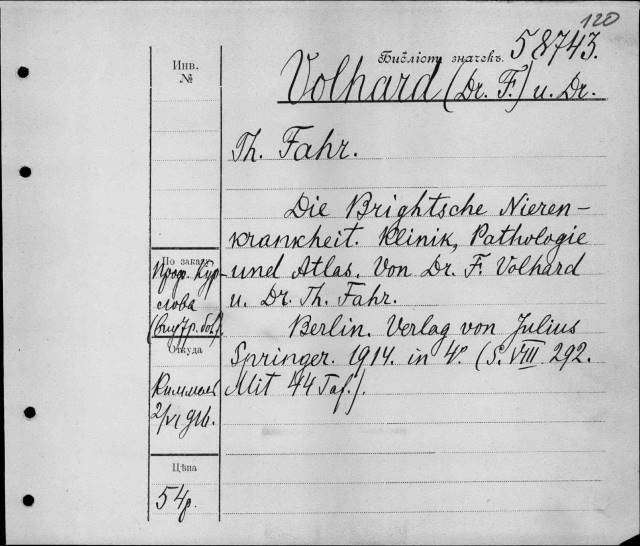 120
Библіот. значекъ. 58743.
Инв.
№
Volhard (Dr. F.) u. Dr.
Th. Fahr.
Die Brightsche Nieren-
krankheit. Klinik, Pathologie
und Atlas. Von Dr. F. Volhard
u. Dr. Th. Fahr.
Berlin. Verlag von Julius
Springer. 1914. in 4°. (S. VIII 292.
Mit 44 Taf.).
По заказу
Проф. Кур-
лова
Откуда
Киммель
Цѣна
54р.